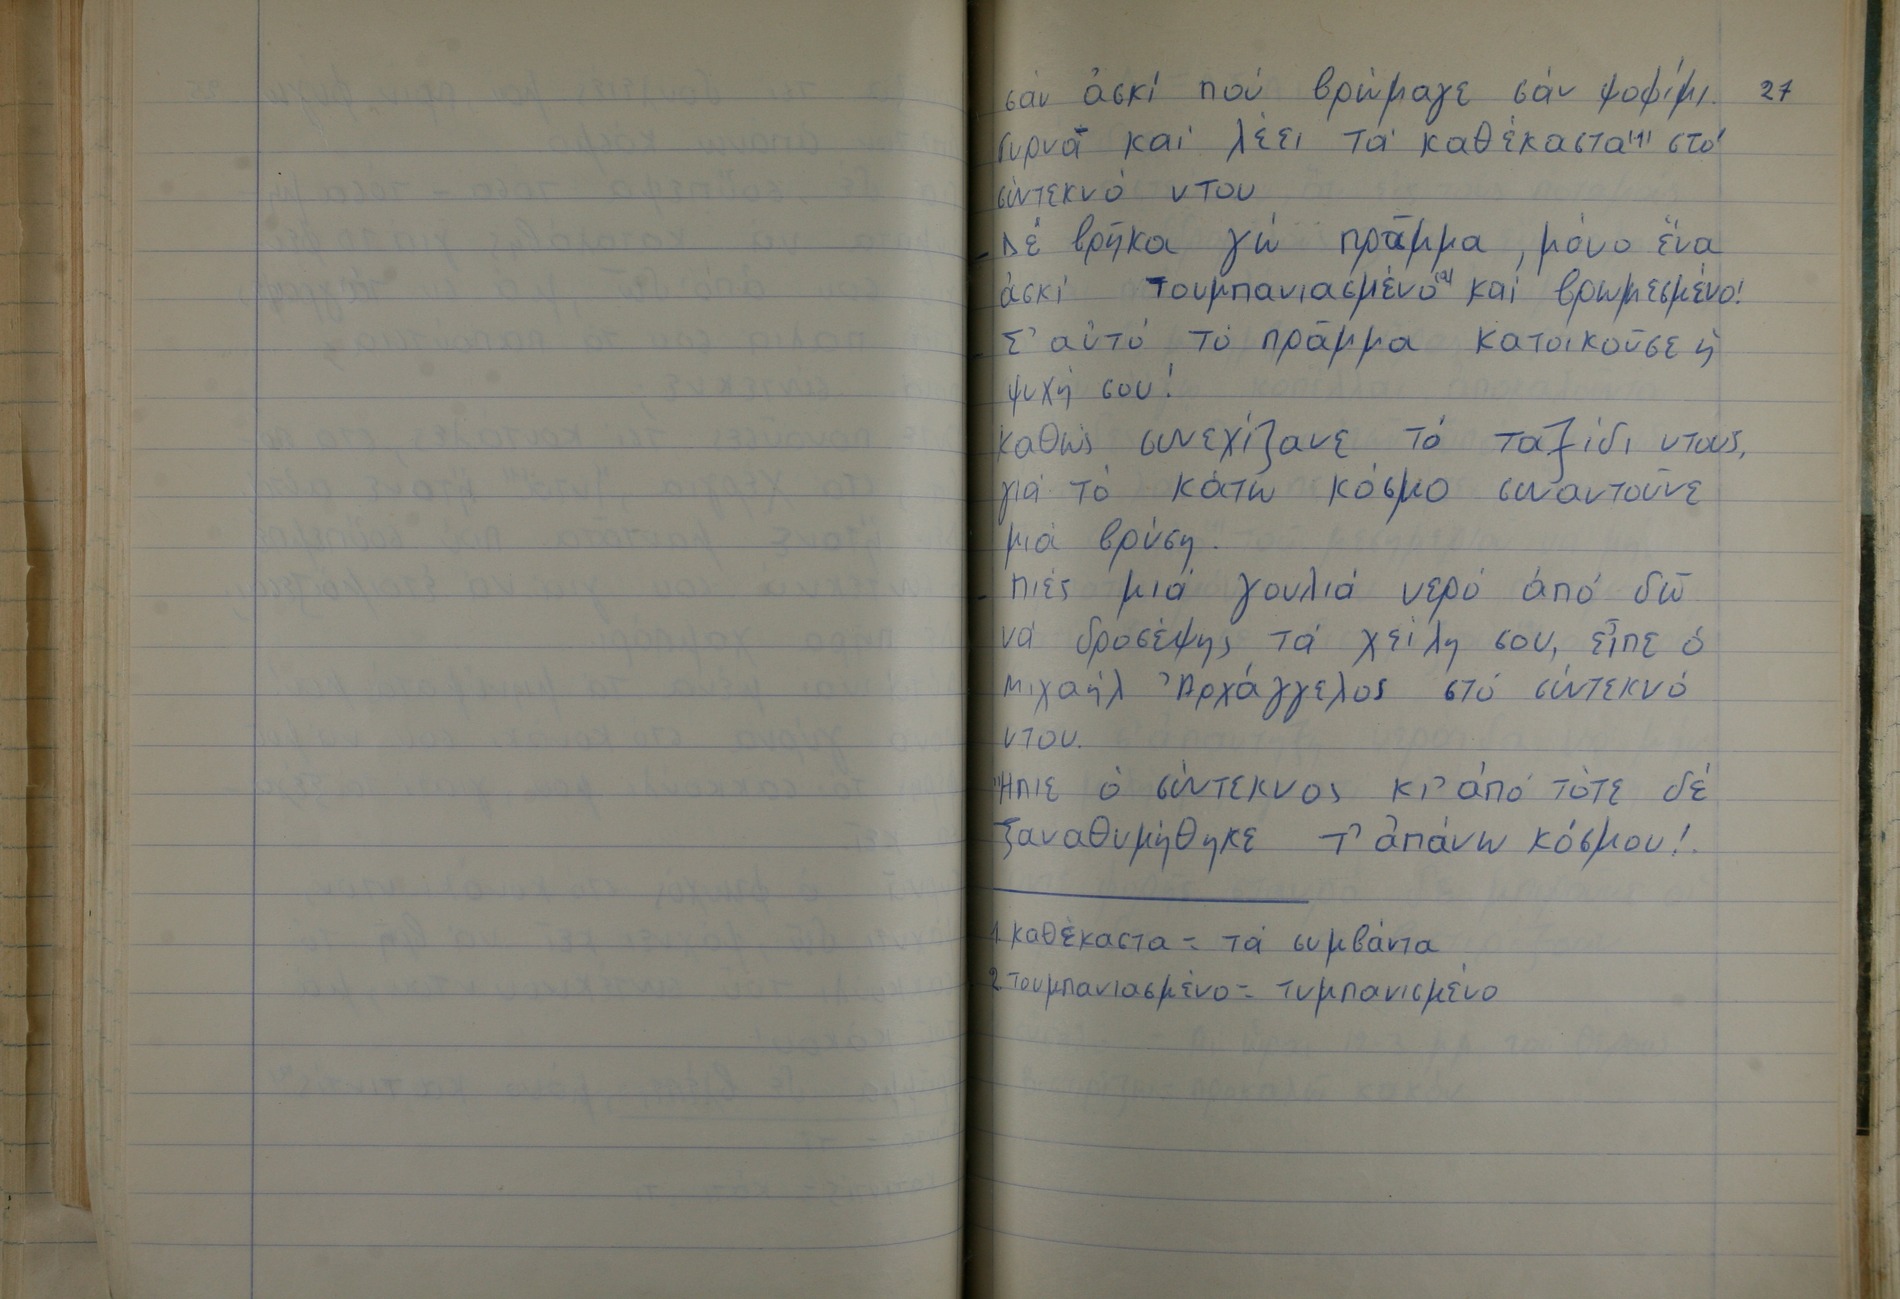 σάν ἀσκί πού βρώμαγε σάν ψοφίμι. 27
Γυρνᾶ καί λέει τά καθέκαστα(1) στό
σύντεκνό ντου
- Δέ βρῆκα γώ πρᾶμμα, μόνο ἕνα
ἀσκί τουμπανιασμένο(2) καί βρωμεσμένο!
- Σ' αὐτό τό πρᾶμμα κατοικοῦσε ἡ
ψυχή σου!
Καθώς συνεχίζανε τό ταξίδι ντους,
γιά τό κάτω κόσμο συναντοῦνε
μιά βρύση.
- Πιές μιά γουλιά νερό ἀπό δῶ
νά δροσέψης τά χείλη σου, εἶπε ὁ
Μιχαήλ Ἀρχάγγελος στό σύντεκνό
ντου.
Ἤπιε ὁ σύντεκνος κι' ἀπό τότε δέ
ξαναθυμήθηκε τ' ἀπάνω κόσμου!.
1. καθέκαστα = τά συμβάντα
2. τουμπανιασμένο = τυμπανισμένο